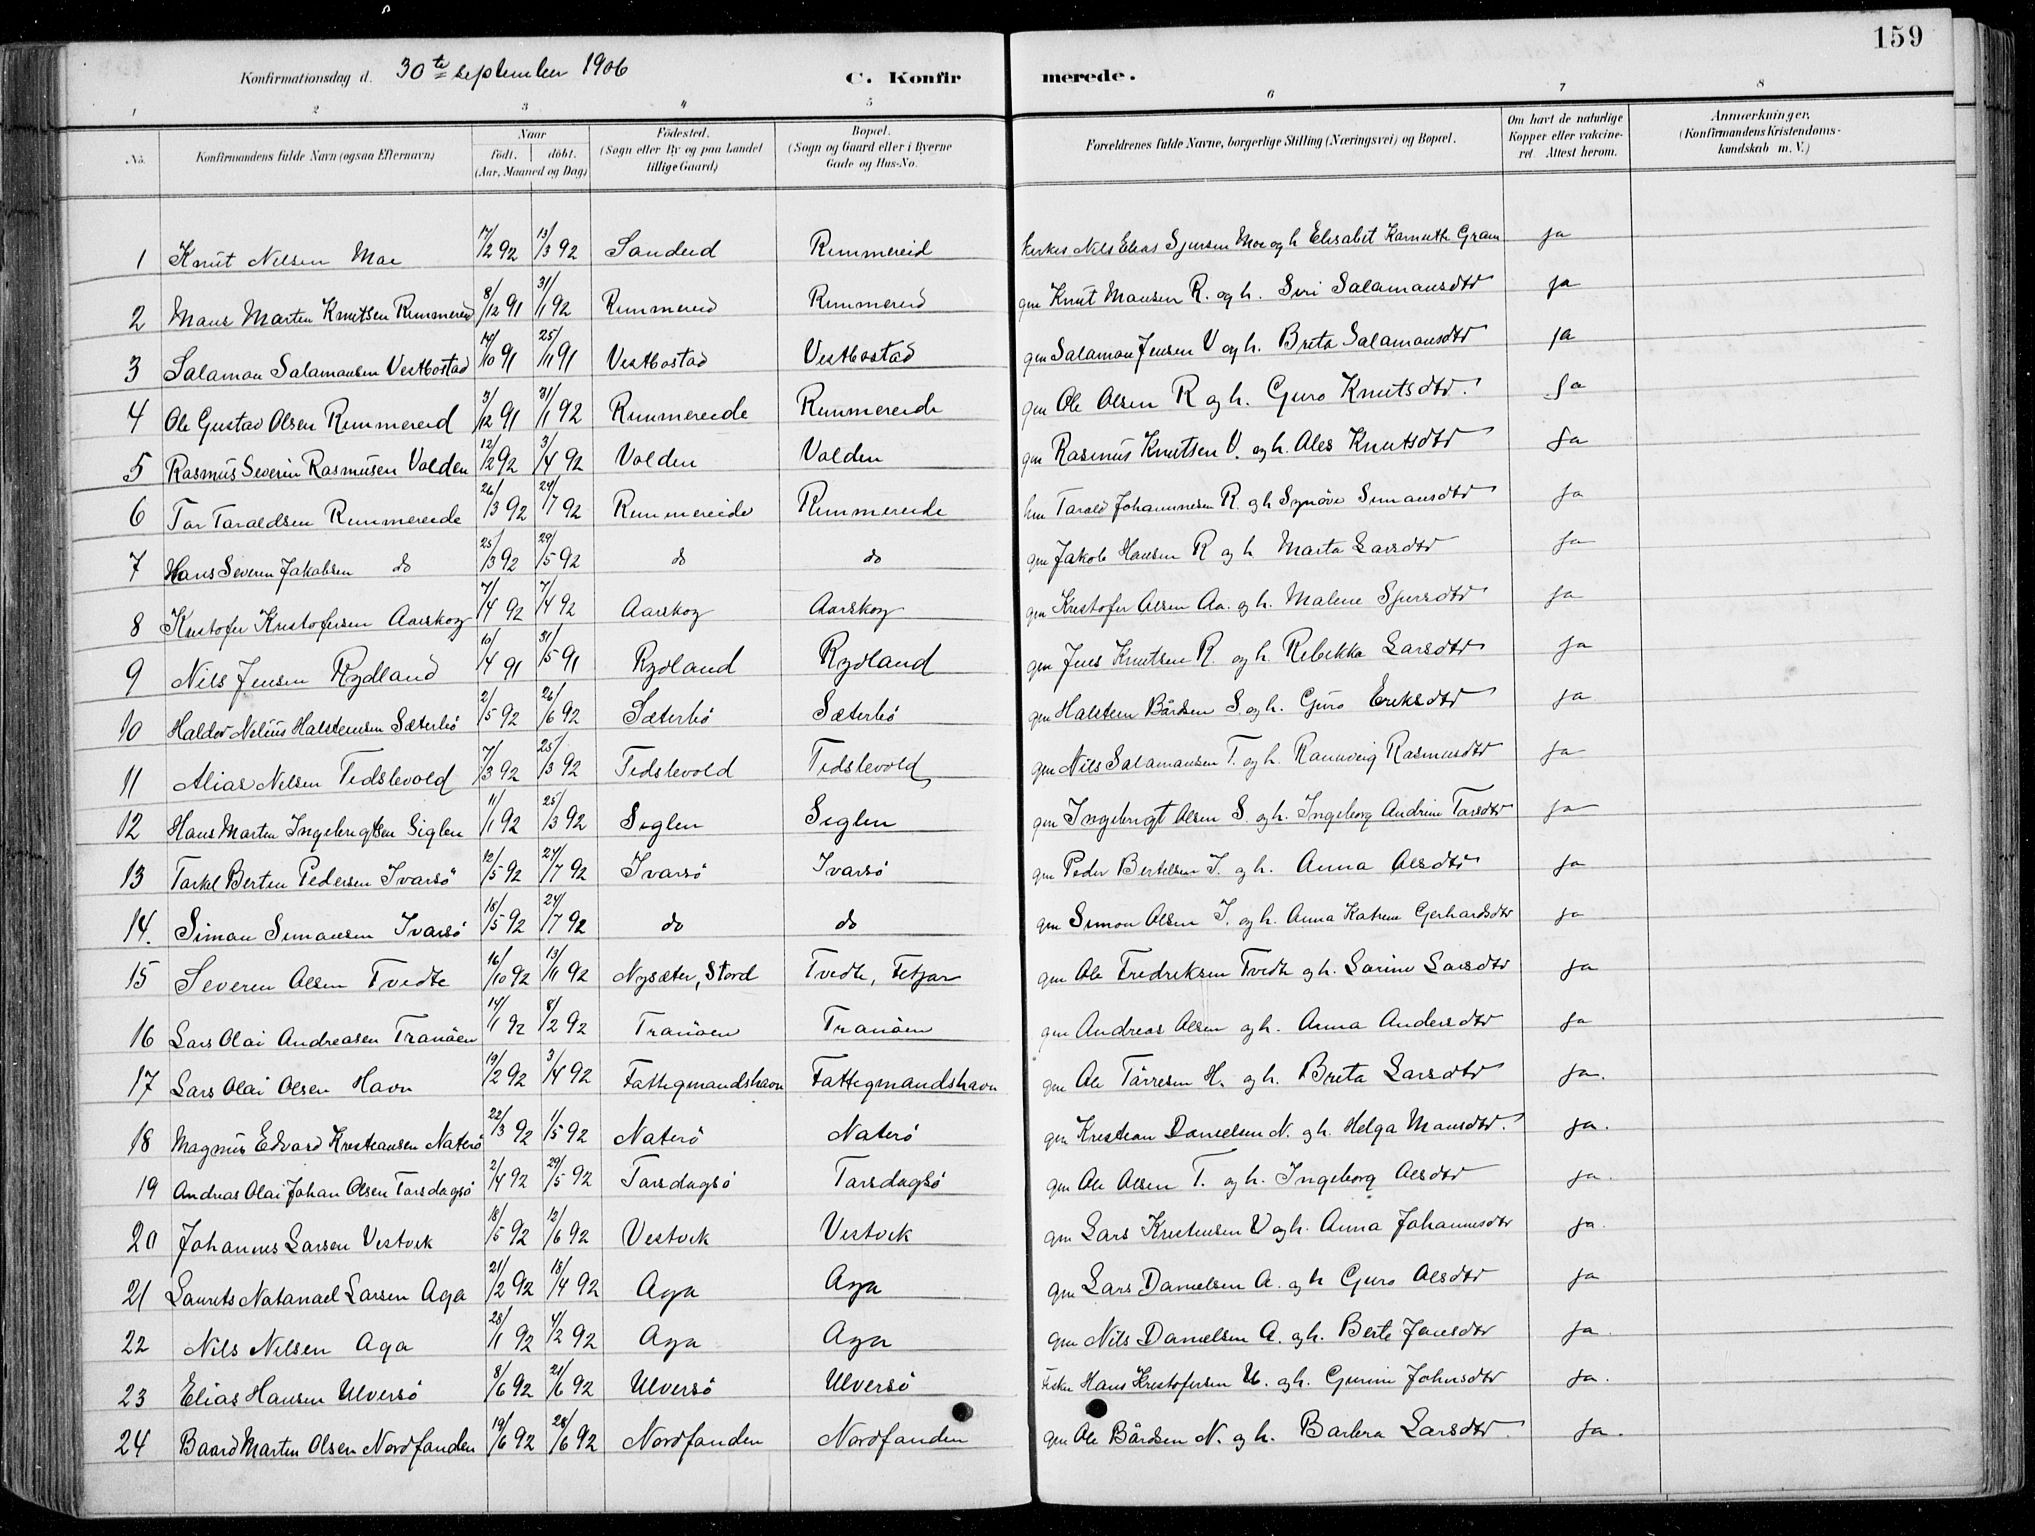 159
Konfirmationsdag d. 30te september 1906 C. Konfirmerede.
1 2 3 4 5 6 7 8
No. Konfirmandens fulde Navn (ogsaa Efternavn) Naar født. døbt. (Aar, Maaned og Dag) Fødested. (Sogn eller By og paa Landet tillige Gaard) Bopæl. (Sogn og Gaard eller i Byerne Gade og Hus-No. Forældrenes fulde Navne, borgerlige Stilling (Næringsvei) og Bopæl. Om havt de naturlige Kopper eller vakcineret Attest herom. Anmærkninger, (Konfirmandens Kristendomskundskab m. V.)
1 Knut Nilsen Moe 17/2 92 13/3 92 Sandeid Rimmereid Nils Elias Sjursen Moe og h. Elisabet Gram ja
2 Mans Marten Knutsen Rimmereid 8/12 91 31/1 92 Rimmereid Rimmereid gm Knut Mansen R. og h. Siri Salamansdtr ja
3 Salamon Salamansen Vestbostad 14/10 91 25/11 91 Vestbostad Vestbostad gm Salamon Jensen V og h. Brita Salamonsdtr ja
4 Ole Gustav Olsen Rimmereid 3/12 91 31/1 92 Rimmereide Rimmereide gm Ole Olsen R og h. Guro Knutsdtr. ja
5 Rasmus Severin Rasmusen Valden 12/2 92 3/4 92 Valden Valden gm Rasmus Knutsen V. og h. Ales Knutsdtr ja
6 Tor Taraldsen Rimmereide 26/3 92 24/7 92 Rimmereide Rimmereide Tarald Johannesen R. og h Synøve Simansdtr ja
7 Hans Severin Jakobsen do 25/3 92 29/5 92 do do gm Jakob Hansen R og h Marta Larsdtr ja
8 Kristofer Kristofersen Aarskog 7/4 92 7/4 92 Aarskog Aarskog gm Kristofer Olsen Aa. og h. Malene Sjursdtr ja
9 Nils Jensen Rydland 10/4 91 31/5 91 Rydland Rydland gm Jens Knutsen R. og h. Rebekka Larsdtr ja
10 Haldor Nelius Halsteinsen Sæterbø 2/5 92 26/6 92 Sæterbø Sæterbø gm Halstein Bårdsen S. og h. Guro Eriksdtr ja
11 Alias Nilsen Tidslevold 7/3 92 25/3 92 Tidslevold Tidslevold gm Nils Salamansen T. og h. Rannveig Rasmusdtr ja
12 Hans Marten Ingebrigtsen Siglen 11/1 92 25/3 92 Siglen Siglen gm Ingebrigt Olsen S. og h. Ingeborg Andrine Tarsdtr ja
13 Tarkel Berten Pedersen Ivarsø 12/5 92 24/7 92 Ivarsø Ivarsø gm Peder Bertelsen I. og h. Anna Olsdtr ja
14. Siman Simansen Ivarsø 18/5 92 24/7 92 do do gm Simon Olsen I. og h. Anna Katrine Gerhardsdtr ja
15 Severin Olsen Tvedte 16/10 92 13/11 92 Nysæter, Stord Tvedte, Fitjar gm Ole Fredriksen Tvedte og h. Larine Larsdtr ja
16 Lars Olai Andreasen Tranøen 14/1 92 8/2 92 Tranøen Tranøen gm Andreas Olsen og h. Anna Andersdtr ja
17 Lars Olai Olsen Havn 19/2 92 3/4 92 Fattigmandshavn Fattigmandshavn gm Ole Tørresen H. og h. Brita Larsdtr ja.
18 Magnus Edvard Kristiansen Naterø 22/3 92 1/5 92 Naterø Naterø gm Kristian Danielsen N. og h. Helga Mansdtr. ja.
19 Andreas Olai Johan Olsen Tarsdagsø 2/4 92 29/5 92 Tarsdagsø Tarsdagsø gm Ole Olsen T. og h. Ingeborg Olsdtr ja.
20 Johannes Larsen Vestvik 18/5 92 12/6 92 Vestvik Vestvik gm Lars Kristensen V og h. Anna Johannesdtr ja.
21 Laurits Natanael Larsen Aga 21/2 92 18/4 92 Aga Aga gm Lars Danielsen A. og h Guro Olsdtr ja
22 Nils Nilsen Aga 28/1 92 4/2 92 Aga Aga gm Nils Danielsen A. og h. Berta Jansdtr ja.
23 Elias Hansen Ulversø 8/6 92 21/6 92 Ulversø Ulversø fisker Hans Kristofersen U. og h. Gurine Johnsdtr ja.
24 Baard Marten Olsen Nordfanden 19/6 92 28/6 92 Nordfanden Nordfanden gm Ole Bårdsen N. og h. Barbra Larsdtr ja.